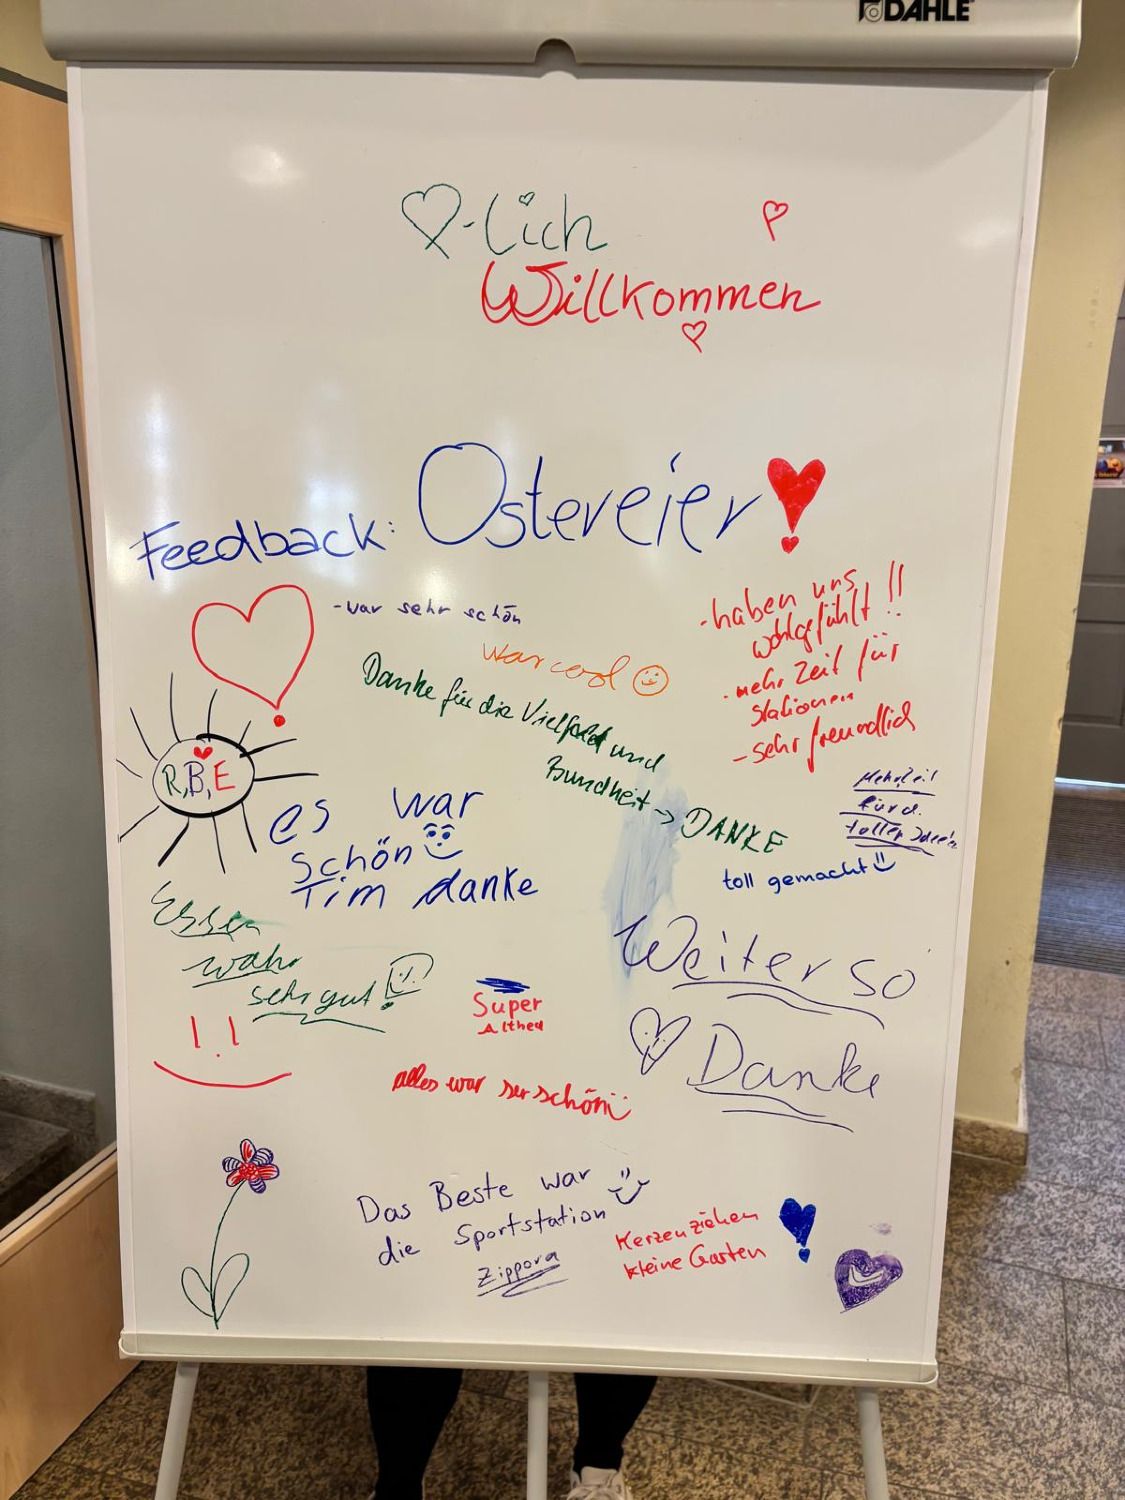 DAHLE
-lich
Willkommen
Feedback: Ostereier
- war sehr schön
war cool
Danke für die Vielfalt und
Bundheit → DANKE
- haben uns
wohlgefühlt !!
- mehr Zeit für
Stationen
- sehr freundlich
Mehr Zeit
für d.
tollen Ideen
toll gemacht
R, B, E
es war
schön
Tim danke
Essen
wahr
sehr gut!
Super
Althea
Weiter so
Danke
alles war ser schön
Das Beste war
die Sportstation
Zippora
Kerzenziehen
kleine Garten